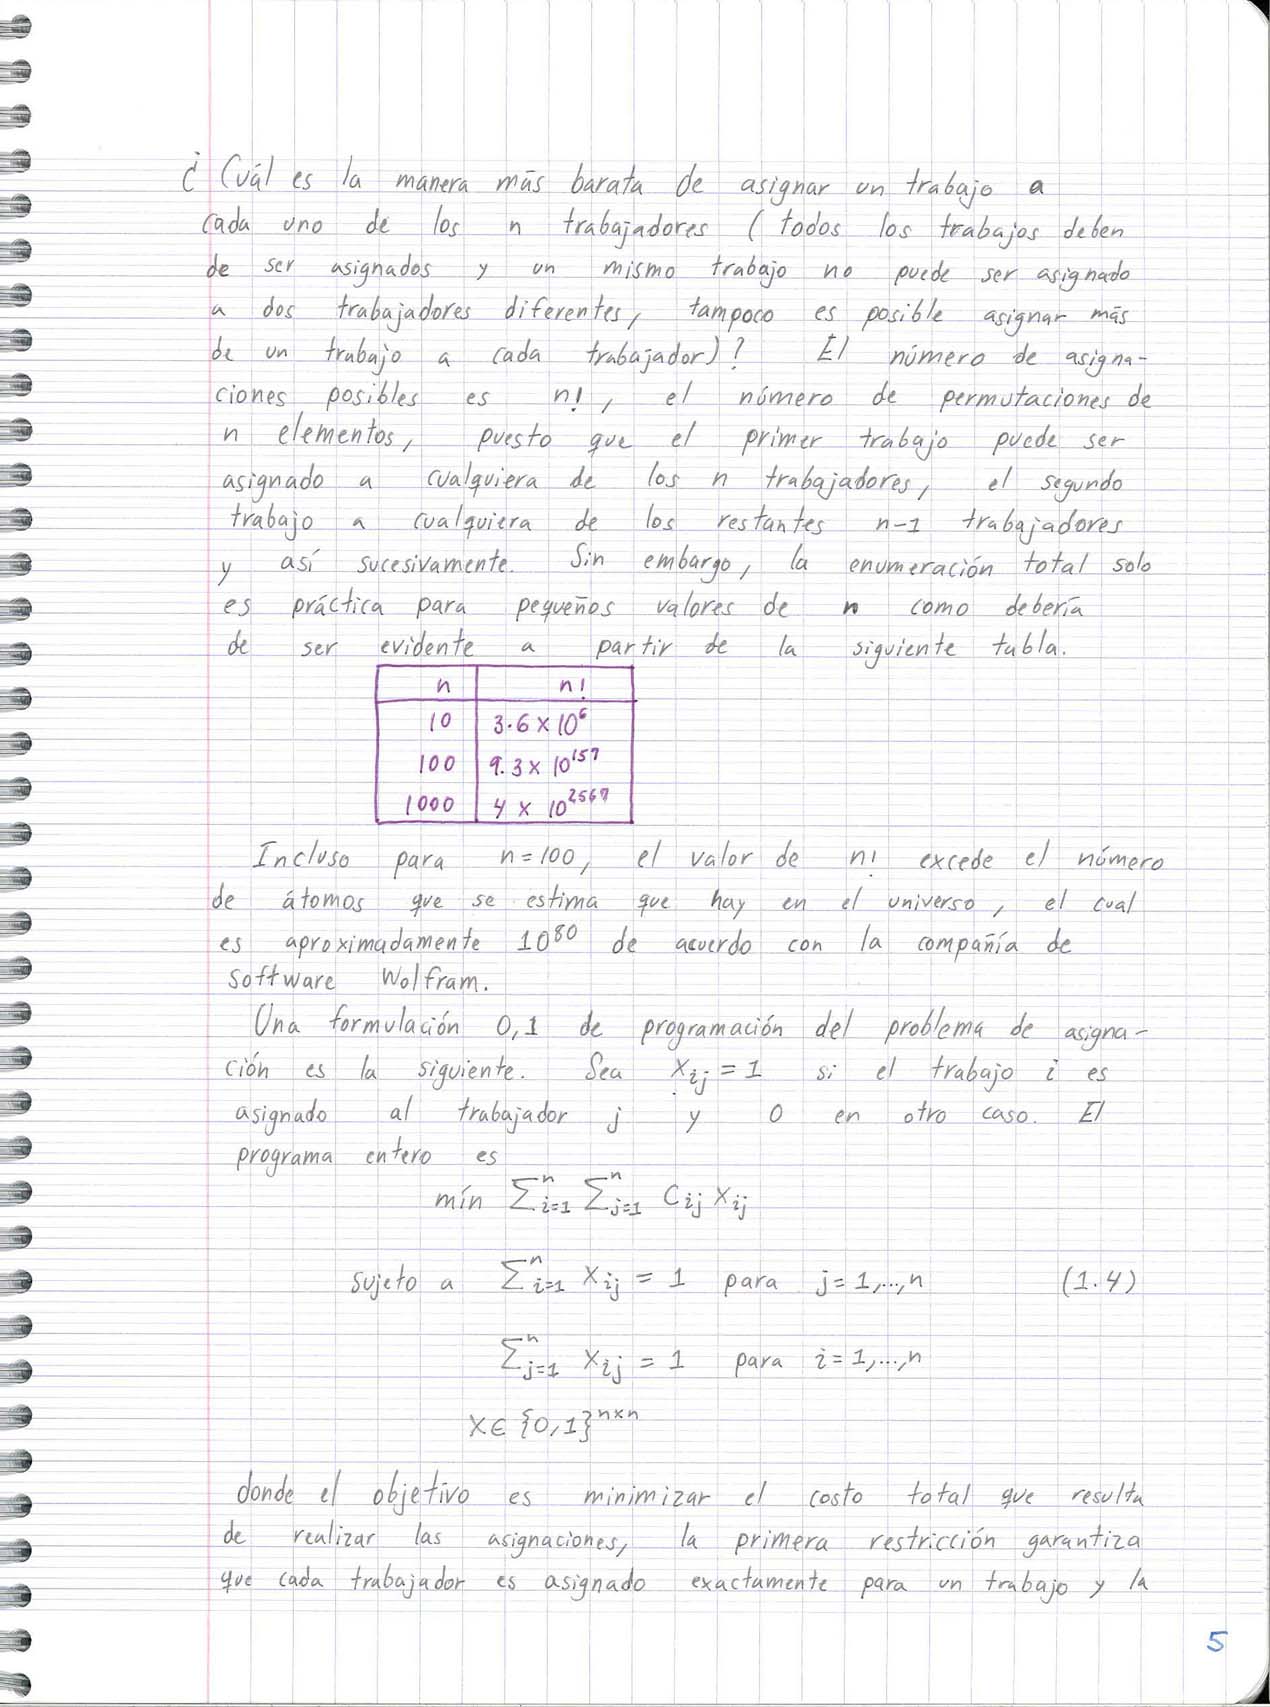 ¿Cuál es la manera más barata de asignar un trabajo a
cada uno de los n trabajadores (todos los trabajos deben
de ser asignados y un mismo trabajo no puede ser asignado
a dos trabajadores diferentes, tampoco es posible asignar más
de un trabajo a cada trabajador)? El número de asigna-
ciones posibles es n!, el número de permutaciones de
n elementos, puesto que el primer trabajo puede ser
asignado a cualquiera de los n trabajadores, el segundo
trabajo a cualquiera de los restantes n-1 trabajadores
y así sucesivamente. Sin embargo, la enumeración total solo
es práctica para pequeños valores de n como debería
de ser evidente a partir de la siguiente tabla.
n n!
10 3.6 × 10^6
100 9.3 × 10^157
1000 4 × 10^2567
Incluso para n=100, el valor de n! excede el número
de átomos que se estima que hay en el universo, el cual
es aproximadamente 10^80 de acuerdo con la compañía de
software Wolfram.
Una formulación 0,1 de programación del problema de asigna-
ción es la siguiente. Sea x_ij = 1 si el trabajo i es
asignado al trabajador j y 0 en otro caso. El
programa entero es
mín ∑_{i=1}^n ∑_{j=1}^n c_ij x_ij
sujeto a ∑_{i=1}^n x_ij = 1 para j=1,...,n (1.4)
∑_{j=1}^n x_ij = 1 para i=1,...,n
x∈{0,1}^{n×n}
donde el objetivo es minimizar el costo total que resulta
de realizar las asignaciones, la primera restricción garantiza
que cada trabajador es asignado exactamente para un trabajo y la
5